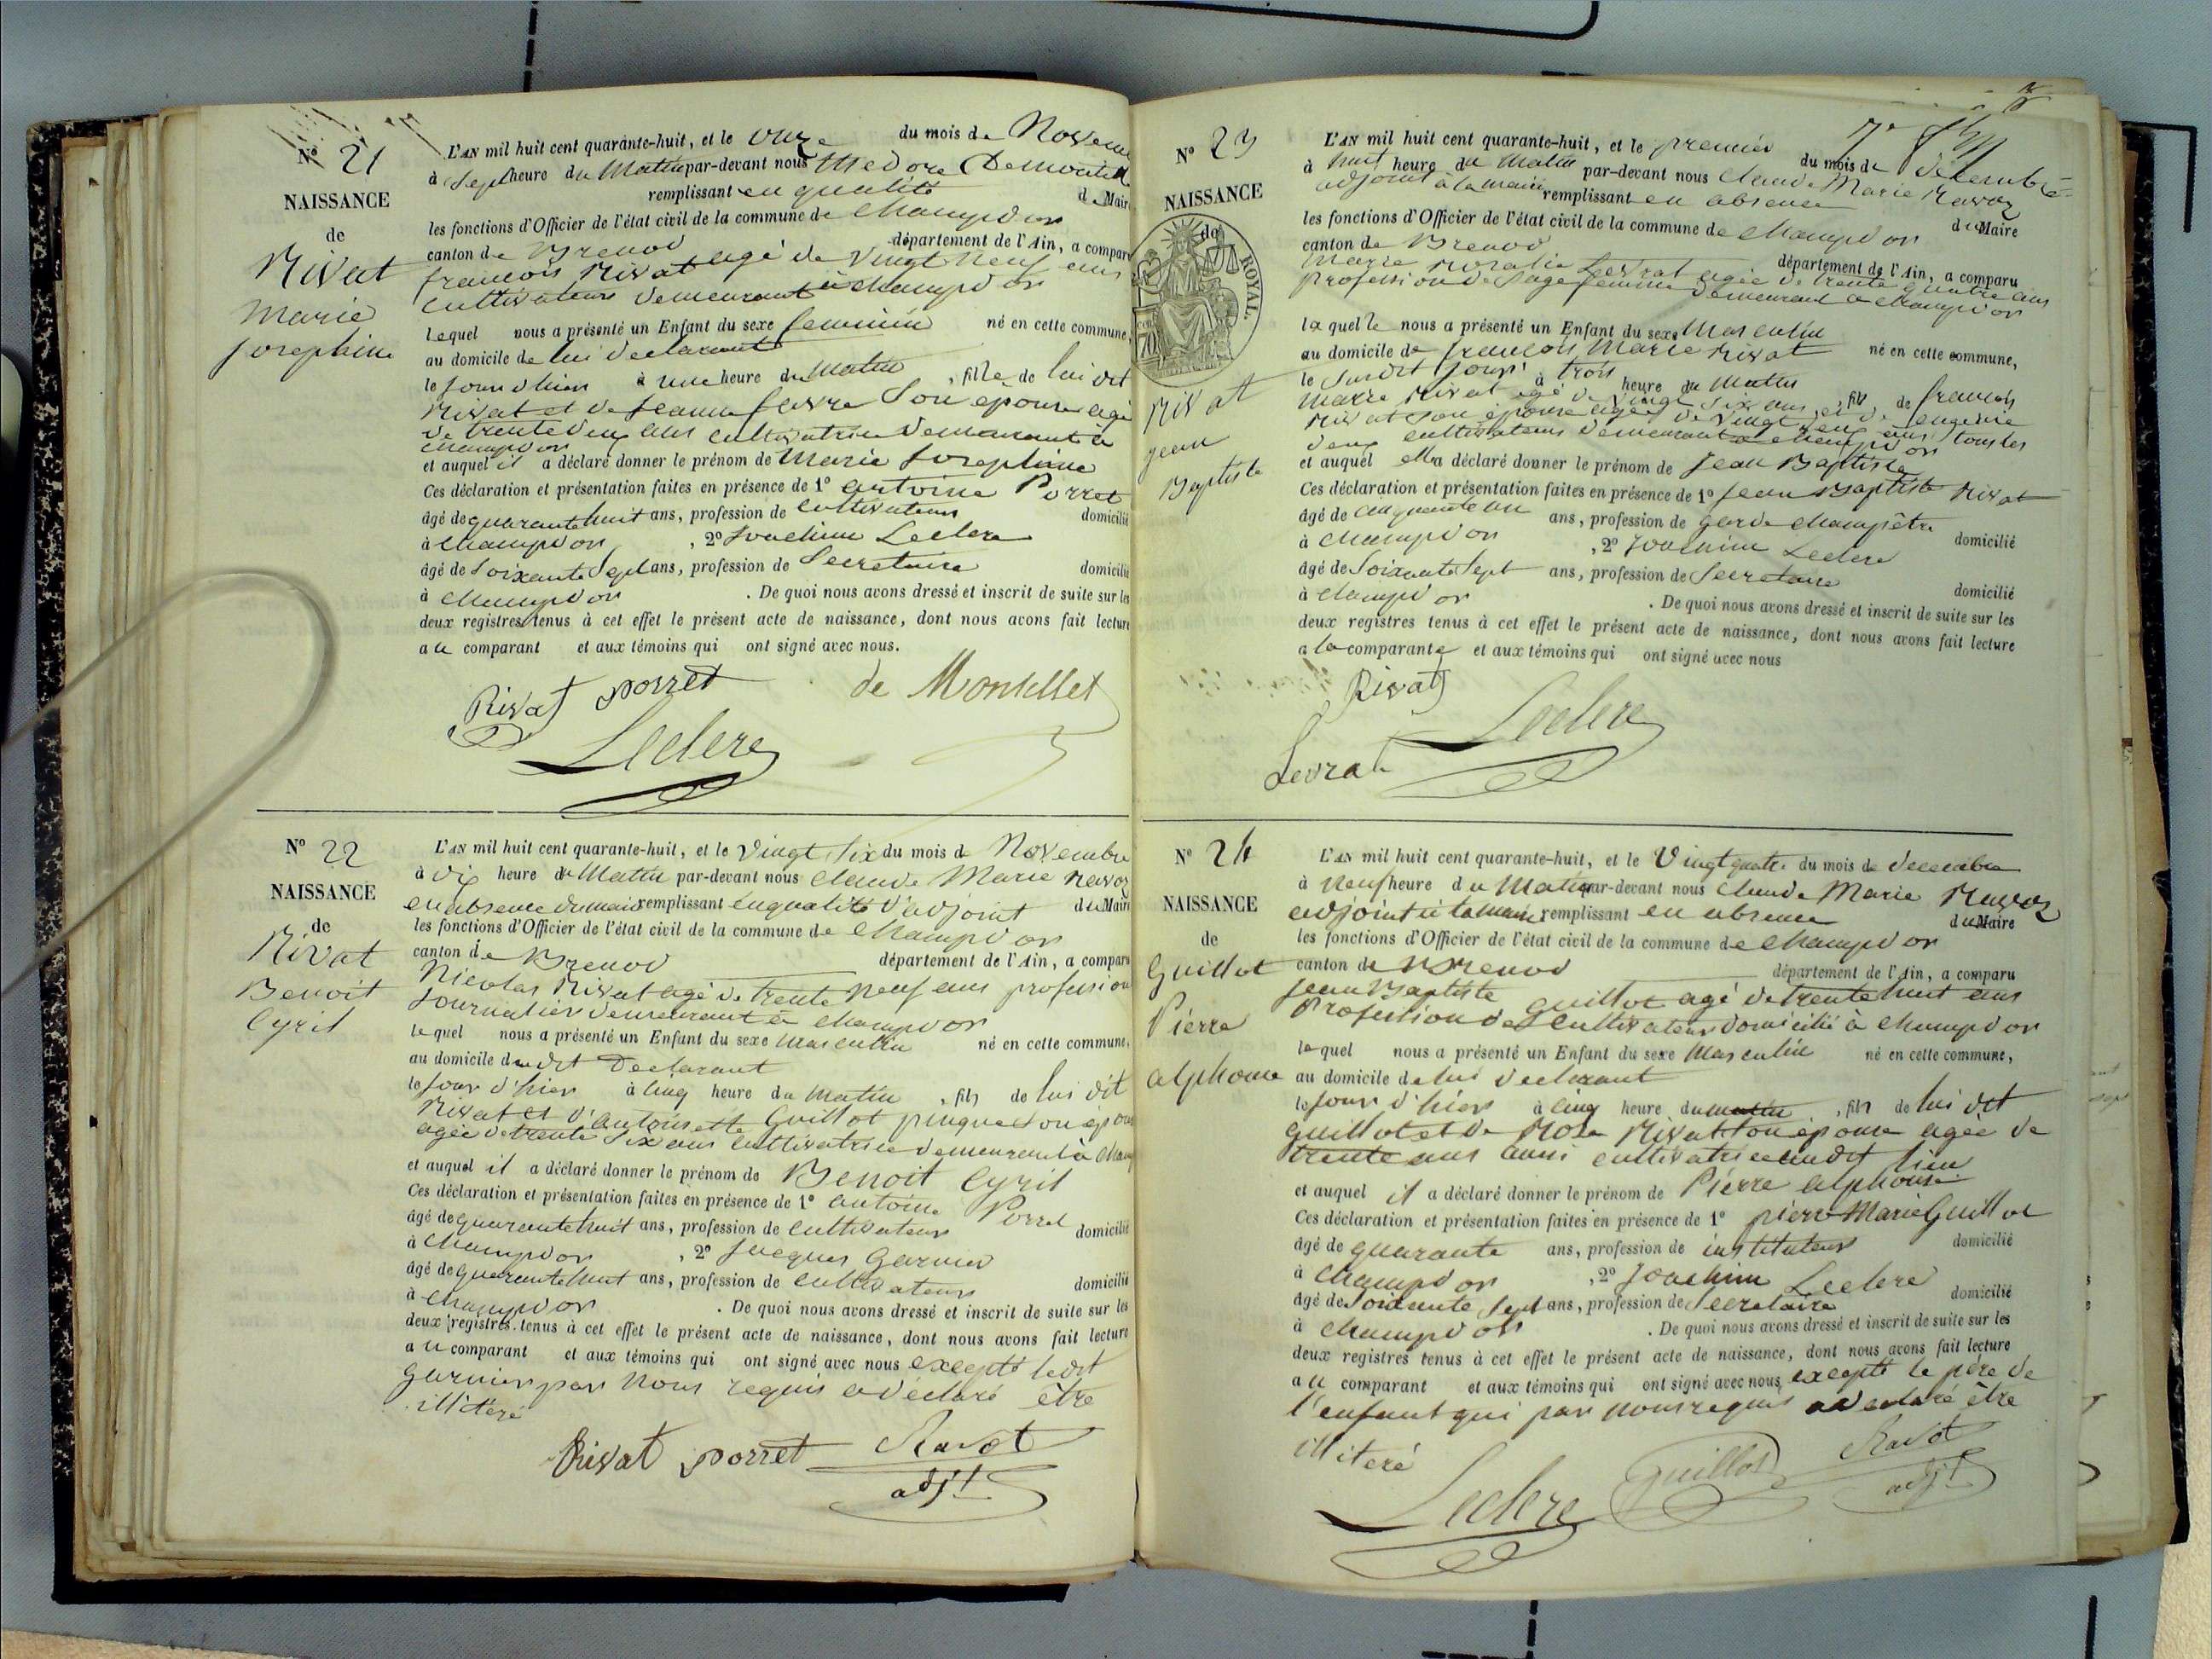 N° 21
NAISSANCE
de
Rivat
Marie
Josephine
L'AN mil huit cent quarante-huit, et le onze du mois de Novem
à Sept heure du Matin par-devant nous Medore Demontell
remplissant en qualité de Mair
les fonctions d'Officier de l'état civil de la commune de Champdor
canton de Brenod département de l'Ain, a compar
francois Rivat agé de Vingt Neuf ans
cultivateur demeurant à champdor
lequel nous a présenté un Enfant du sexe feminin né en cette commune,
au domicile de lui declarant
le jour d'hier à une heure du Matin , fille de lui dit
Rivat et de Jeanne favre Son epouse agé
de trente deux ans cultivatrice demeurant à
champdor
et auquel il a déclaré donner le prénom de Marie Josephine
Ces déclaration et présentation faites en présence de 1° antoine Porret
âgé de quarante huit ans, profession de cultivateur domicilié
à champdor , 2° Joachim Leclere
âgé de Soixante Sept ans, profession de Secretaire domicilié
à champdor . De quoi nous avons dressé et inscrit de suite sur les
deux registres tenus à cet effet le présent acte de naissance, dont nous avons fait lecture
au comparant et aux témoins qui ont signé avec nous.
Rivat porret de Montellet
Leclere
N° 22
NAISSANCE
de
Rivat
Benoit
Cyril
L'AN mil huit cent quarante-huit, et le Vingt Six du mois de Novembre
à dix heure du Matin par-devant nous Claude Marie Ravoz
en absence du maire remplissant en qualité d'adjoint du Mair
les fonctions d'Officier de l'état civil de la commune de Champdor
canton de Brenod département de l'Ain, a comparu
Nicolas Rivat agé de trente neuf ans profession
Journalier demeurant à champdor
lequel nous a présenté un Enfant du sexe Masculin né en cette commune,
au domicile du dit Declarant
le Jour d'hier à cinq heure du Matin , fils de lui dit
Rivat et d'antoinette Guillot pingue Son épous
agée de trente Six ans cultivatrice demeurant à Champ
et auquel il a déclaré donner le prénom de Benoit Cyril
Ces déclaration et présentation faites en présence de 1° antoine Porret
âgé de quarante huit ans, profession de cultivateur domicilié
à Champdor , 2° Jacques Garnier
âgé de quarante huit ans, profession de cultivateur domicilié
à champdor . De quoi nous avons dressé et inscrit de suite sur les
deux registres tenus à cet effet le présent acte de naissance, dont nous avons fait lecture
au comparant et aux témoins qui ont signé avec nous excepté ledit
Garnier par Nous requis a déclaré être
illiteré
Rivat porret Ravot
adjt
N° 23
NAISSANCE
de
ROYAL.
Rivat
jean
Baptiste
L'AN mil huit cent quarante-huit, et le premier du mois de décembre
à huit heure du Matin par-devant nous Claude Marie Ravoz
adjoint à la mairie remplissant en absence du Maire
les fonctions d'Officier de l'état civil de la commune de Champdor
canton de Brenod département de l'Ain, a comparu
Marie Rosalie Levrat agée de trente quatre ans
profession de Sage femme demeurant à champdor
laquelle nous a présenté un Enfant du sexe Masculin
au domicile de francois Marie Rivat né en cette commune,
le Susdit jour à trois heure du Matin , fils de francois
Marie Rivat agé de Vingt Six ans et d'eugenie
Rivat Son épouse agée de Vingt ans tous les
deux cultivateurs demeurant à champdor
et auquel elle a déclaré donner le prénom de Jean Baptiste
Ces déclaration et présentation faites en présence de 1° Jean Baptiste Rivat
âgé de cinquante un ans, profession de Garde champêtre
à champdor , 2° Joachim Leclere domicilié
âgé de Soixante Sept ans, profession de Secretaire
à champdor domicilié
. De quoi nous avons dressé et inscrit de suite sur les
deux registres tenus à cet effet le présent acte de naissance, dont nous avons fait lecture
a la comparante et aux témoins qui ont signé avec nous
Rivat
Leclere
Levrat
N° 24
NAISSANCE
de
Guillot
Pierre
alphonse
L'AN mil huit cent quarante-huit, et le Vingt quatre du mois de decembre
à Neuf heure du Matin par-devant nous Claude Marie Ravoz
adjoint à la mairie remplissant en absence du Maire
les fonctions d'Officier de l'état civil de la commune de Champdor
canton de Brenod département de l'Ain, a comparu
Jean Baptiste Guillot agé de trente huit ans
Profession de Cultivateur domicilié à champdor
lequel nous a présenté un Enfant du sexe Masculin né en cette commune,
au domicile de lui declarant
le jour d'hier à cinq heure du matin , fils de lui dit
Guillot et de Rose Rivat Son épouse agée de
trente ans aussi cultivatrice audit lieu
et auquel il a déclaré donner le prénom de Pierre alphonse
Ces déclaration et présentation faites en présence de 1° pierre Marie Guillot
âgé de quarante ans, profession de instituteur domicilié
à champdor , 2° Joachim Leclere
âgé de Soixante Sept ans, profession de Secretaire domicilié
à champdor . De quoi nous avons dressé et inscrit de suite sur les
deux registres tenus à cet effet le présent acte de naissance, dont nous avons fait lecture
au comparant et aux témoins qui ont signé avec nous, excepté le père de
l'enfant qui par nous requis a declaré être
illiteré
Leclere Guillot Ravot
adjt